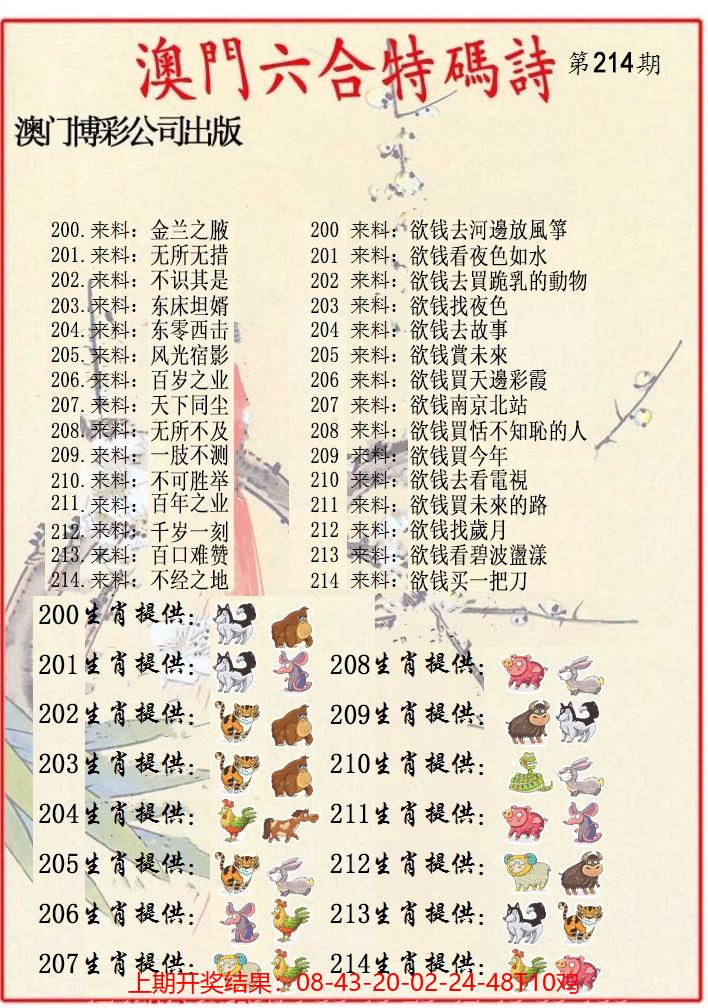 澳門六合特碼詩 第214期
澳门博彩公司出版
200.来料：金兰之腋 200 来料：欲钱去河邊放風箏
201.来料：无所无措 201 来料：欲钱看夜色如水
202.来料：不识其是 202 来料：欲钱去買跪乳的動物
203.来料：东床坦婿 203 来料：欲钱找夜色
204.来料：东零西击 204 来料：欲钱去故事
205.来料：风光宿影 205 来料：欲钱賞未來
206.来料：百岁之业 206 来料：欲钱買天邊彩霞
207.来料：天下同尘 207 来料：欲钱南京北站
208.来料：无所不及 208 来料：欲钱買恬不知恥的人
209.来料：一肢不测 209 来料：欲钱買今年
210.来料：不可胜举 210 来料：欲钱去看電視
211.来料：百年之业 211 来料：欲钱買未來的路
212.来料：千岁一刻 212 来料：欲钱找歲月
213.来料：百口难赞 213 来料：欲钱看碧波盪漾
214.来料：不经之地 214 来料：欲钱买一把刀
200生肖提供：
201生肖提供： 208生肖提供：
202生肖提供： 209生肖提供：
203生肖提供： 210生肖提供：
204生肖提供： 211生肖提供：
205生肖提供： 212生肖提供：
206生肖提供： 213生肖提供：
207生肖提供： 214生肖提供：
上期开奖结果：08-43-20-02-24-48T10鸡